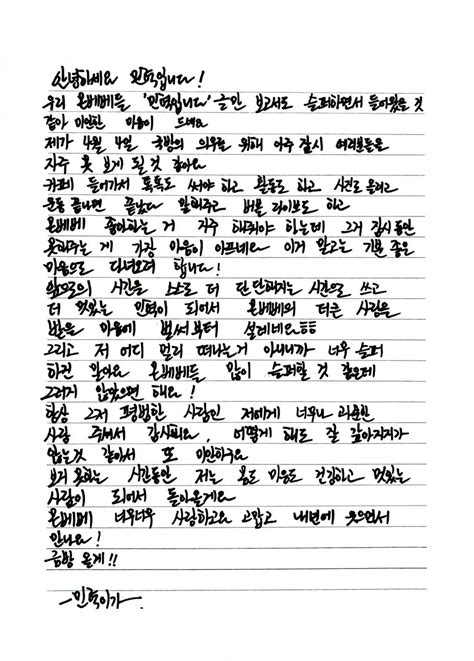 안녕하세요 민혁입니다!
우리 몬베베들 '민혁입니다' 글만 보고서도 슬퍼하면서 들어왔을 것
같아 미안한 마음이 드네요
제가 4월 4일 국방의 의무를 위해 아주 잠시 여러분들을
자주 못 보게 될 것 같아요
카페 들어가서 톡톡도 써야 하고 활동도 하고 사진도 올리고
운동 끝나면 끝났다 말해주고 버블 라이브도 하고
몬베베 좋아하는 거 자주 해줘야 하는데 그거 잠시 동안
못해주는 게 가장 마음이 아프네요 이거 말고는 기분 좋은
마음으로 다녀오려 합니다!
앞으로의 시간을 스스로 더 단단해지는 시간으로 쓰고
더 멋있는 민혁이 되어서 몬베베의 더큰 사랑을
받을 마음에 벌써부터 설레네요ㅎㅎ
그리고 저 어디 멀리 떠나는거 아니니까 너무 슬퍼
하진 말아요 몬베베들 많이 슬퍼할 것 같은데
그러지 않았으면 해요!
항상 그저 평범한 사람인 저에게 너무나 과분한
사랑 주셔서 감사해요, 어떻게 해도 다 갚아지지가
않는것 같아서 또 미안하구요
보지 못하는 시간동안 저는 몸도 마음도 건강하고 멋있는
사람이 되어서 돌아올게요
몬베베 너무너무 사랑하고요 고맙고 내년에 웃으면서
만나요!
금방 올게!!
-민혁이가-